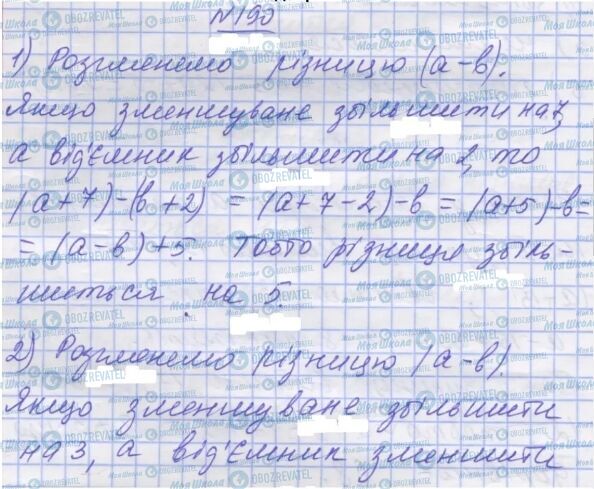 №190
1) Розглянемо різницю (а-в).
Якщо зменшуване збільшити на 7,
а від'ємник збільшити на 2, то
(а+7)-(в+2) = (а+7-2)-в = (а+5)-в=
= (а-в)+5. Тобто різниця збіль-
шиться на 5.
2) Розглянемо різницю (а-в).
Якщо зменшуване збільшити
на 3, а від'ємник зменшити